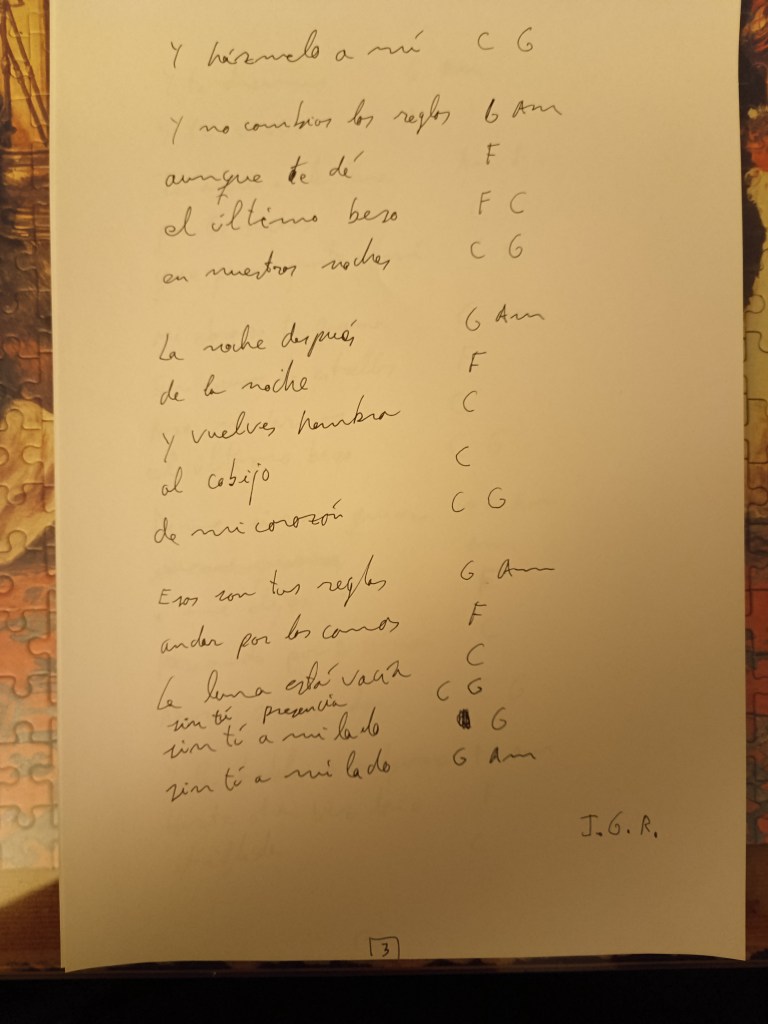 Y házmelo a mí C G
Y no cambias las reglas G Am
aunque te dé F
el último beso F C
en nuestras noches C G
La noche después G Am
de la noche F
y vuelves hambra C
al cobijo C
de mi corazón C G
Esas son tus reglas G Am
andar por las camas F
La luna está vacía C
sin tú presencia C G
sin tí a mi lado G
sin tí a mi lado G Am
J.G.R.
3